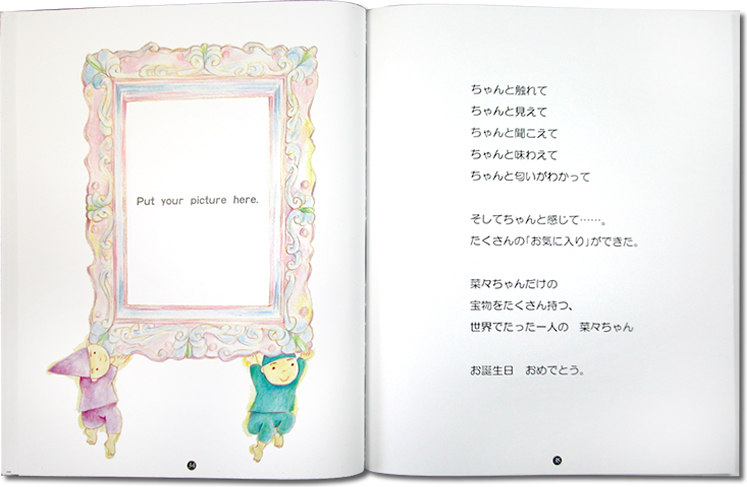 Put your picture here.
ちゃんと触れて
ちゃんと見えて
ちゃんと聞こえて
ちゃんと味わえて
ちゃんと匂いがわかって
そしてちゃんと感じて……。
たくさんの「お気に入り」ができた。
菜々ちゃんだけの
宝物をたくさん持つ、
世界でたった一人の　菜々ちゃん
お誕生日　おめでとう。